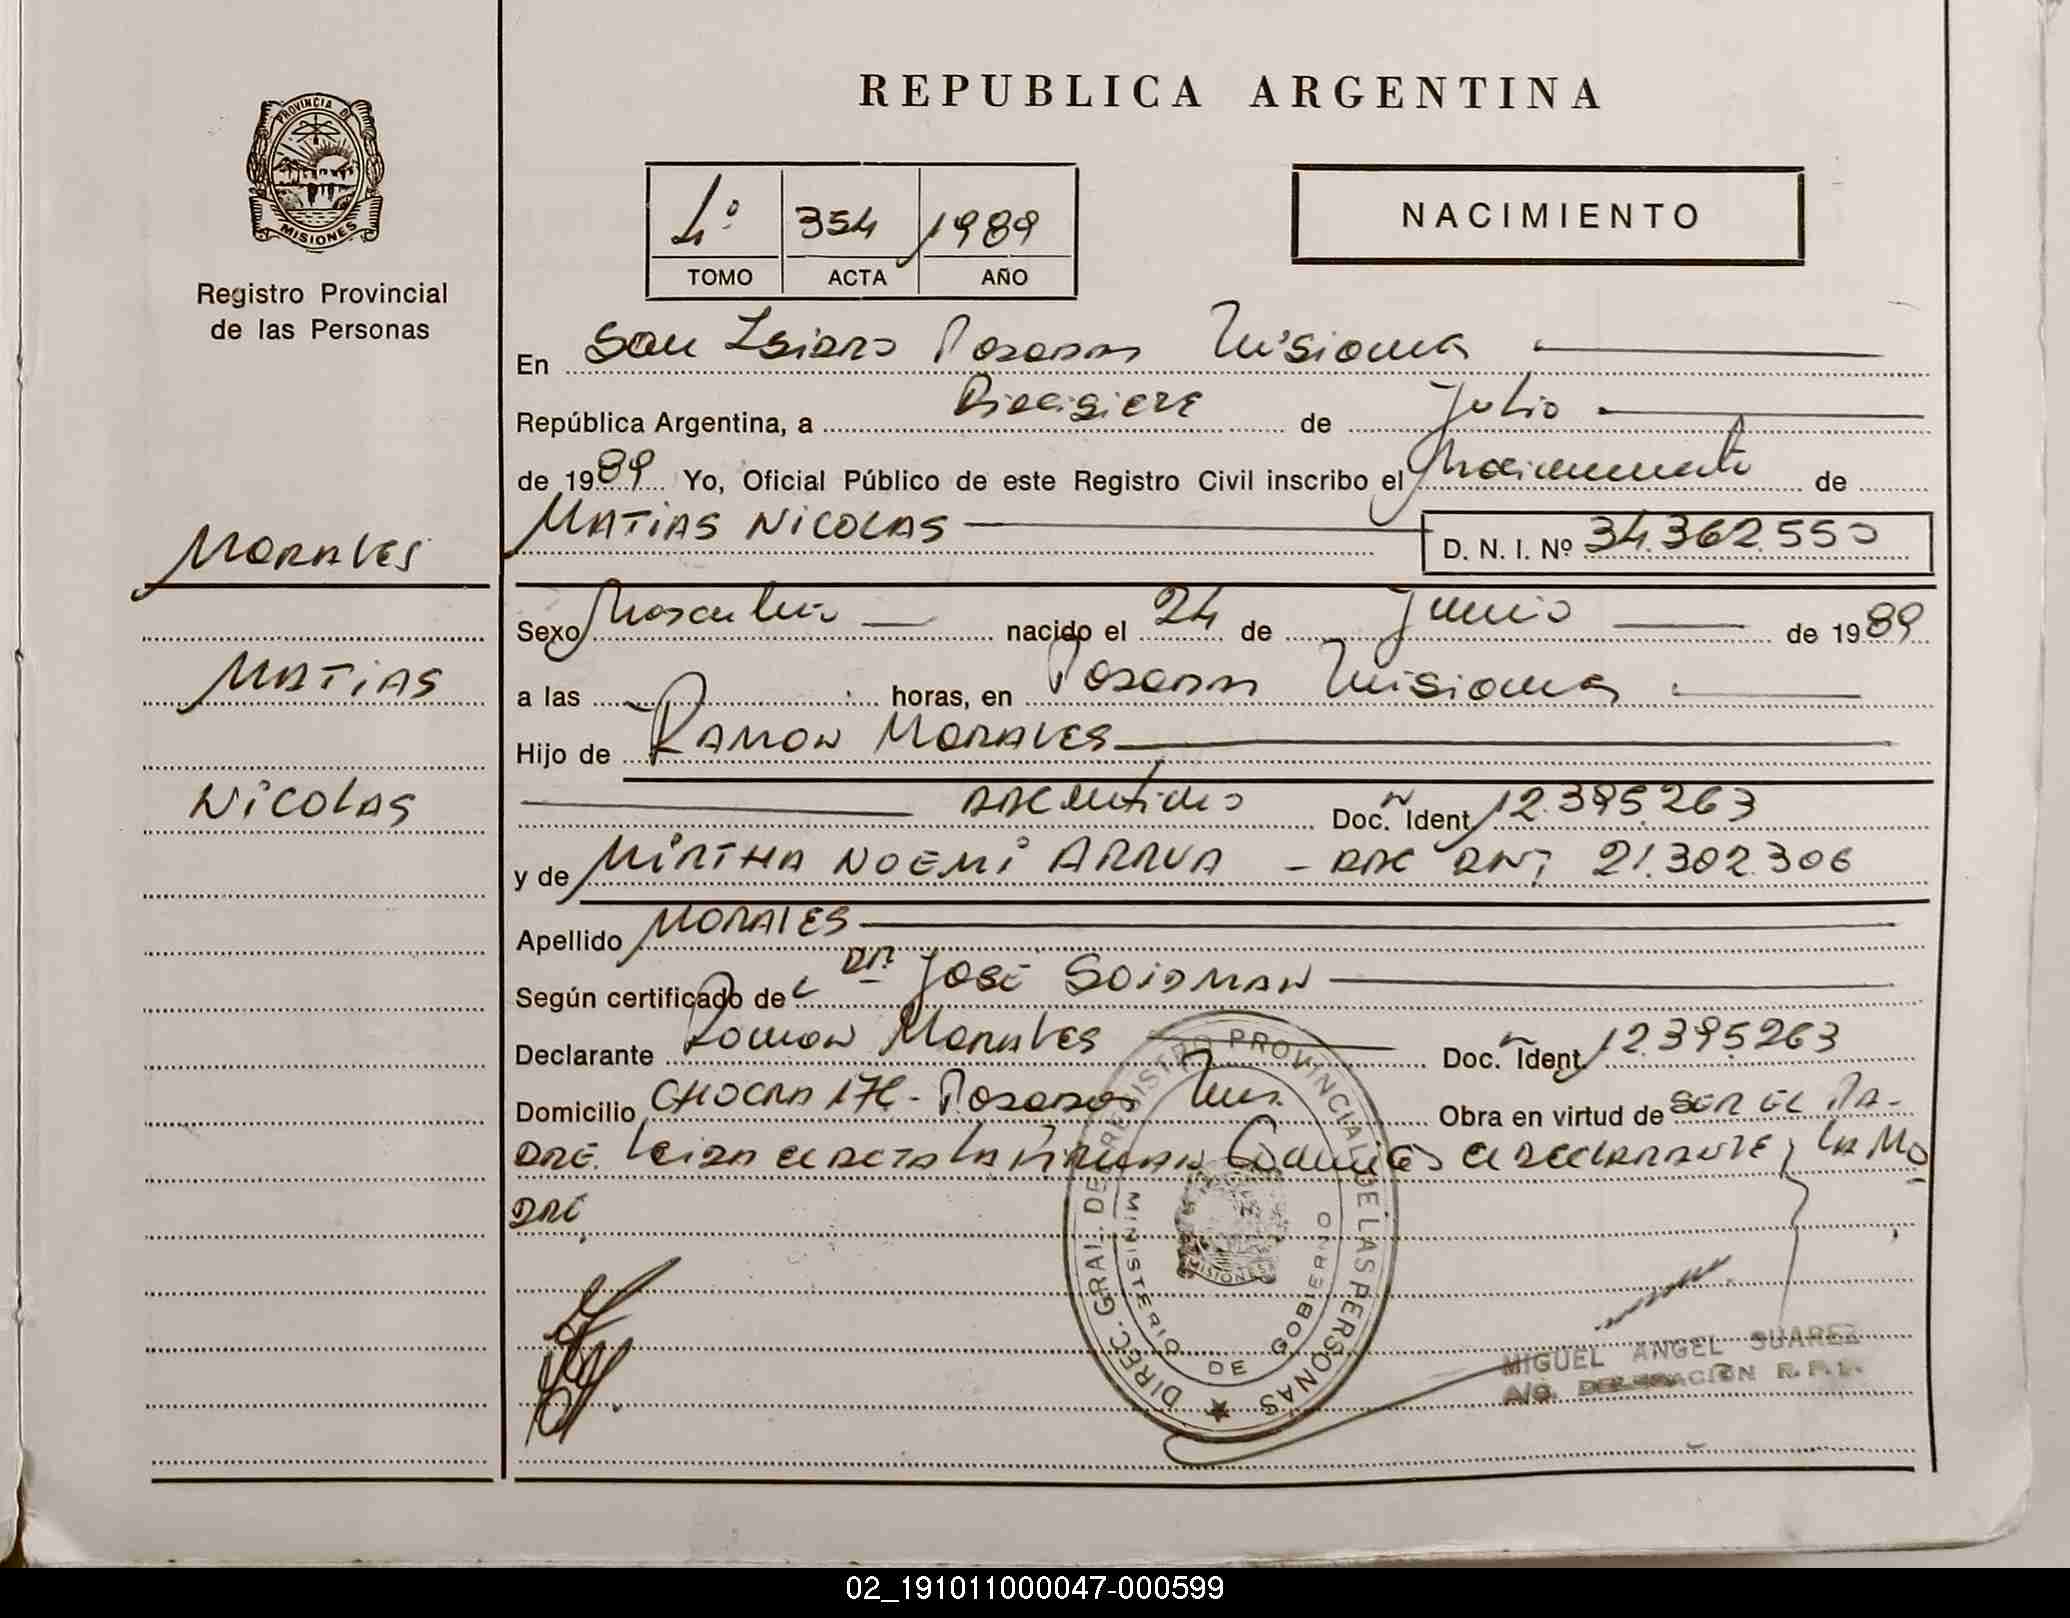 REPUBLICA ARGENTINA
PROVINCIA DE
MISIONES
Registro Provincial
de las Personas
1º 354 1989
TOMO ACTA AÑO
NACIMIENTO
En San Isidro Posadas Misiones
República Argentina, a Diecisiete de Julio
de 1989 Yo, Oficial Público de este Registro Civil inscribo el Nacimiento de
MATIAS NICOLAS D. N. I. Nº 34.362.550
MORALES
MATIAS
NICOLAS
Sexo Masculino nacido el 24 de Junio de 1989
a las horas, en Posadas Misiones
Hijo de RAMON MORALES
Argentino Doc. Ident. 12.395.263
y de MIRTHA NOEMI ARRUA - ARG DNI 21.302.306
Apellido MORALES
Según certificado de DR JOSÉ SOIDMAN
Declarante Ramon Morales Doc. Ident. 12.395.263
Domicilio CHACRA 176 - Posadas Mns. Obra en virtud de SER EL PA-
DRE. Leida el acta la firman Conmigo el declarante y LA MA-
DRE.
DIREC. GRAL. DE REGISTRO PROVINCIAL DE LAS PERSONAS
MINISTERIO DE GOBIERNO
MISIONES
MIGUEL ANGEL SUAREZ
A/C. DELEGACION R.P.P.
02_191011000047-000599